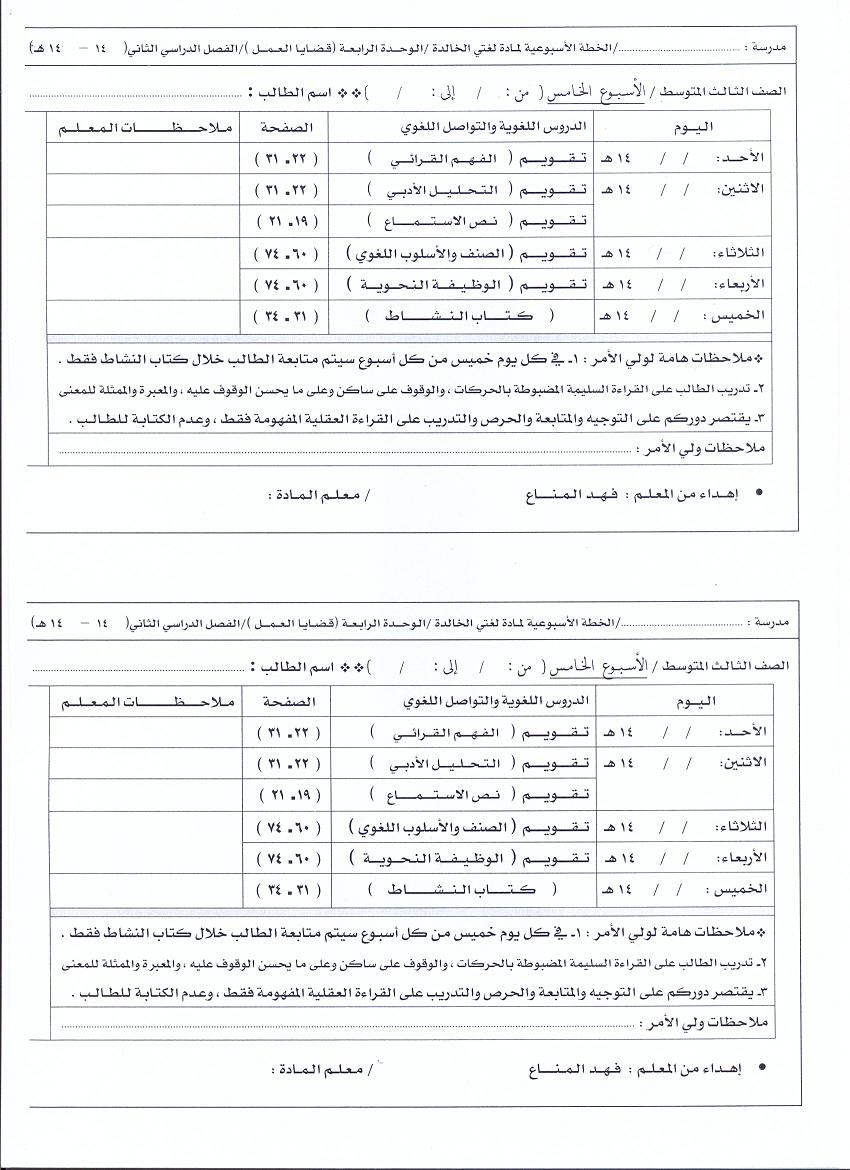 مدرسة : ............................../الخطة الأسبوعية لمادة لغتي الخالدة /الوحدة الرابعة (قضايا العمل )/الفصل الدراسي الثاني( ١٤ – ١٤ هـ)
الصف الثالث المتوسط / الأسبوع الخامس ( من : / إلى : / )❖❖ اسم الطالب : ..............................
اليوم الدروس اللغوية والتواصل اللغوي الصفحة ملاحظات المعلم
الأحد: / / ١٤ هـ تقويم ( الفهم القرائي ) ( ٢٢ـ ٣١ )
الاثنين: / / ١٤ هـ تقويم ( التحليل الأدبي ) ( ٢٢ـ ٣١ )
تقويم ( نص الاستماع ) ( ١٩ـ ٢١ )
الثلاثاء: / / ١٤ هـ تقويم ( الصنف والأسلوب اللغوي ) ( ٦٠ـ ٧٤ )
الأربعاء: / / ١٤ هـ تقويم ( الوظيفة النحوية ) ( ٦٠ـ ٧٤ )
الخميس : / / ١٤ هـ ( كتاب النشاط ) ( ٣١ـ ٣٤ )
❖ملاحظات هامة لولي الأمر : ١ـ في كل يوم خميس من كل أسبوع سيتم متابعة الطالب خلال كتاب النشاط فقط .
٢ـ تدريب الطالب على القراءة السليمة المضبوطة بالحركات ، والوقوف على ساكن وعلى ما يحسن الوقوف عليه ، والمعبرة والممثلة للمعنى
٣ـ يقتصر دوركم على التوجيه والمتابعة والحرص والتدريب على القراءة العقلية المفهومة فقط ، وعدم الكتابة للطالب .
ملاحظات ولي الأمر : ..............................
• إهداء من المعلم : فهد المناع / معلم المادة :
مدرسة : ............................../الخطة الأسبوعية لمادة لغتي الخالدة /الوحدة الرابعة (قضايا العمل )/الفصل الدراسي الثاني( ١٤ – ١٤ هـ)
الصف الثالث المتوسط / الأسبوع الخامس ( من : / إلى : / )❖❖ اسم الطالب : ..............................
اليوم الدروس اللغوية والتواصل اللغوي الصفحة ملاحظات المعلم
الأحد: / / ١٤ هـ تقويم ( الفهم القرائي ) ( ٢٢ـ ٣١ )
الاثنين: / / ١٤ هـ تقويم ( التحليل الأدبي ) ( ٢٢ـ ٣١ )
تقويم ( نص الاستماع ) ( ١٩ـ ٢١ )
الثلاثاء: / / ١٤ هـ تقويم ( الصنف والأسلوب اللغوي ) ( ٦٠ـ ٧٤ )
الأربعاء: / / ١٤ هـ تقويم ( الوظيفة النحوية ) ( ٦٠ـ ٧٤ )
الخميس : / / ١٤ هـ ( كتاب النشاط ) ( ٣١ـ ٣٤ )
❖ملاحظات هامة لولي الأمر : ١ـ في كل يوم خميس من كل أسبوع سيتم متابعة الطالب خلال كتاب النشاط فقط .
٢ـ تدريب الطالب على القراءة السليمة المضبوطة بالحركات ، والوقوف على ساكن وعلى ما يحسن الوقوف عليه ، والمعبرة والممثلة للمعنى
٣ـ يقتصر دوركم على التوجيه والمتابعة والحرص والتدريب على القراءة العقلية المفهومة فقط ، وعدم الكتابة للطالب .
ملاحظات ولي الأمر : ..............................
• إهداء من المعلم : فهد المناع / معلم المادة :